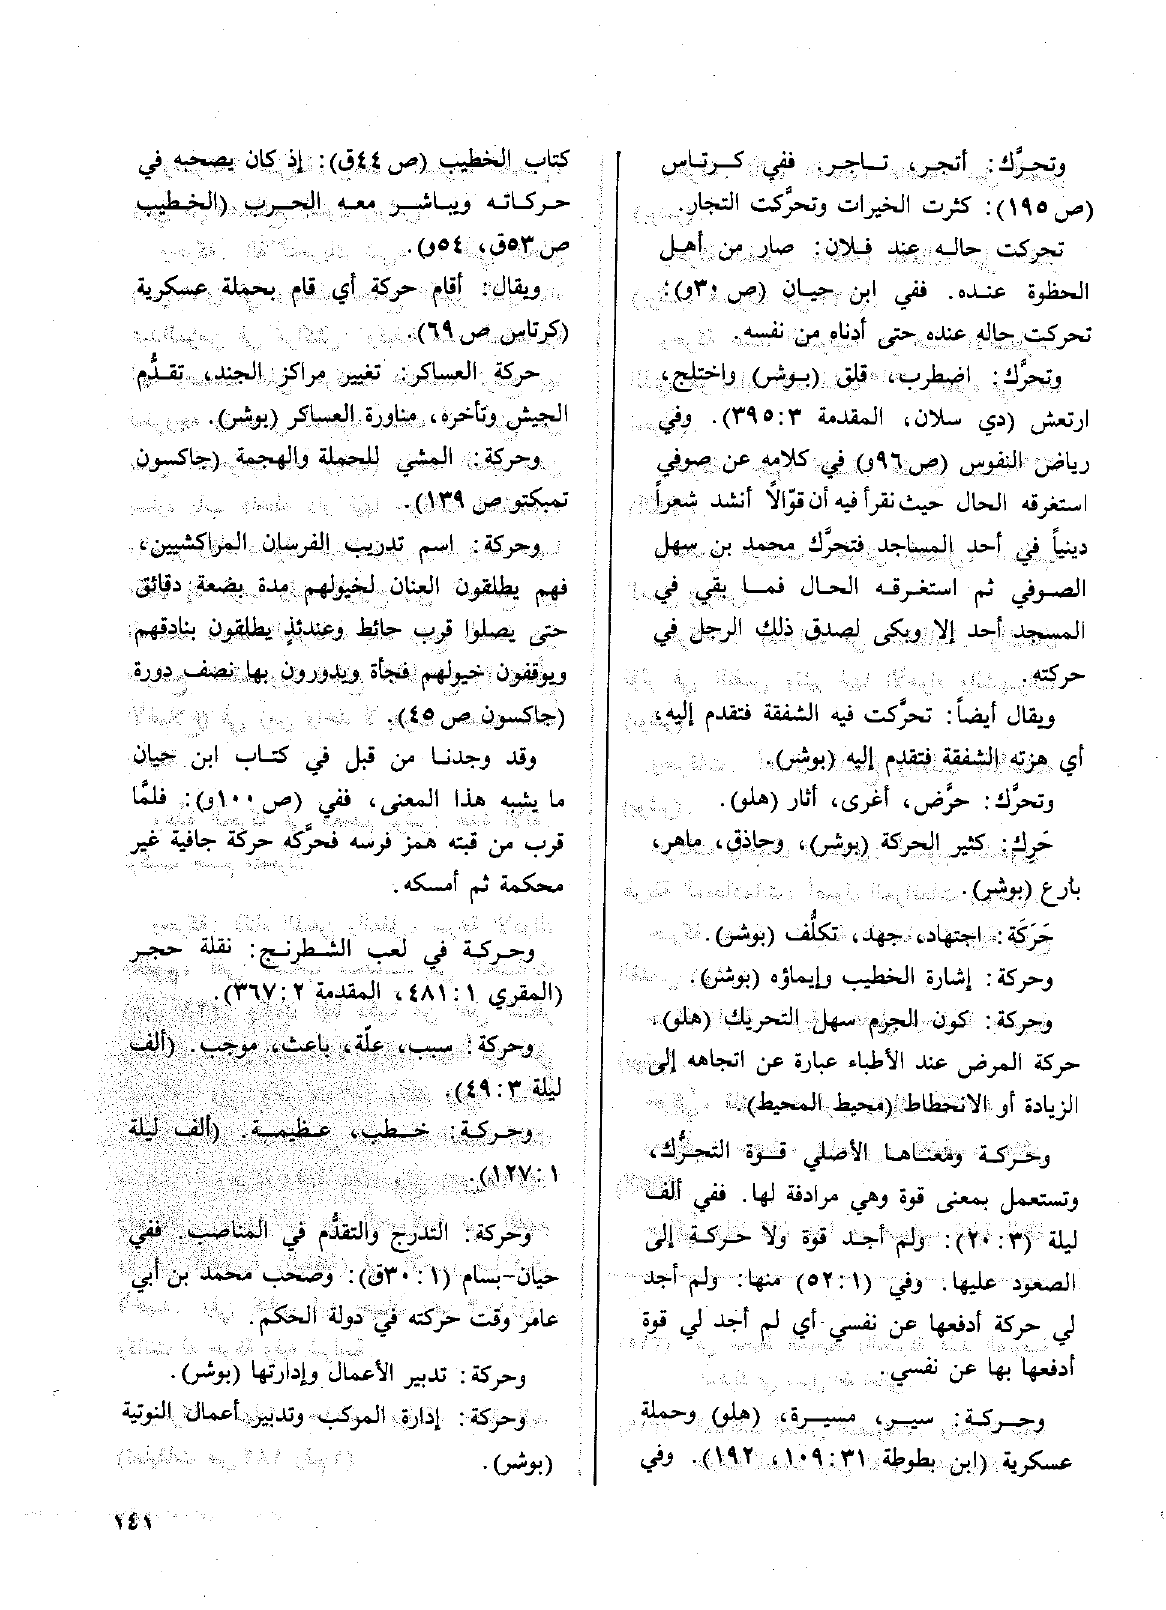 وتحرَّك: أتجر، تـاجر. ففي كـرتاس
(ص ١٩٥): كثرت الخيرات وتحرَّكت التجار.
تحركت حالـه عند فـلان: صار من أهـل
الحظوة عنـده. ففي ابن حيـان (ص ٣٠و):
تحركت حاله عنده حتى أدناه من نفسه.
وتحرَّك: اضطرب، قلق (بوشر) واختلج،
ارتعش (دي سلان، المقدمة ٣: ٣٩٥). وفي
رياض النفوس (ص ٩٦و) في كلامه عن صوفي
استغرقه الحال حيث نقرأ فيه أن قوّالاً أنشد شعراً
دينياً في أحد المساجد فتحرَّك محمد بن سهل
الصـوفي ثم استغرقـه الحال فمـا بقي في
المسجد أحد إلا وبكى لصدق ذلك الرجل في
حركته.
ويقال أيضاً: تحرَّكت فيه الشفقة فتقدم إليه،
أي هزته الشفقة فتقدم إليه (بوشر).
وتحرَّك: حرَّض، أغرى، أثار (هلو).
حَرِك: كثير الحركة (بوشر)، وحاذق، ماهر،
بارع (بوشر).
حَرَكَة: اجتهاد، جهد، تكلُّف (بوشر).
وحركة: إشارة الخطيب وإيماؤه (بوشر).
وحركة: كون الجرم سهل التحريك (هلو).
حركة المرض عند الأطباء عبارة عن اتجاهه إلى
الزيادة أو الانحطاط (محيط المحيط).
وحركة ومعناها الأصلي قوة التحرُّك،
وتستعمل بمعنى قوة وهي مرادفة لها. ففي ألف
ليلة (٣: ٢٠): ولم أجد قوة ولا حركة إلى
الصعود عليها. وفي (١: ٥٢) منها: ولم أجد
لي حركة أدفعها عن نفسي أي لم أجد لي قوة
أدفعها بها عن نفسي.
وحـركـة: سيـر، مسيـرة، (هلو) وحملة
عسكرية (ابن بطوطة ٣١: ١٠٩، ١٩٢). وفي
كتاب الخطيب (ص ٤٤ق): إذ كان يصحبه في
حركـاتـه ويباشـر معـه الحـرب (الخطيب
ص ٥٣ق، ٥٤و).
ويقال: أقام حركة أي قام بحملة عسكرية
(كرتاس ص ٦٩).
حركة العساكر: تغيير مراكز الجند، تقـدُّم
الجيش وتأخره، مناورة العساكر (بوشر).
وحركة: المشي للحملة والهجمة (جاكسون
تمبكتو ص ١٣٩).
وحركة: اسم تدريب الفرسان المراكشيين،
فهم يطلقون العنان لخيولهم مدة بضعة دقائق
حتى يصلوا قرب حائط وعندئذٍ يطلقون بنادقهم
ويوقفون خيولهم فجأة ويدورون بها نصف دورة
(جاكسون ص ٤٥).
وقد وجدنـا من قبل في كتـاب ابن حيان
ما يشبه هذا المعنى، ففي (ص ١٠٠و): فلمَّا
قرب من قبته همز فرسه فحرَّكه حركة جافية غير
محكمة ثم أمسكه.
وحـركـة في لعب الشـطرنـج: نقلة حجـر
(المقري ١: ٤٨١، المقدمة ٢: ٣٦٧).
وحركة: سبب، علّة، باعث، موجب. (ألف
ليلة ٣: ٤٩).
وحـركـة: خـطب، عـظيمـة. (ألف ليلة
١: ١٢٧).
وحركة: التدرج والتقدُّم في المناصب. ففي
حيان-بسام (١: ٣٠ق): وصحب محمد بن أبي
عامر وقت حركته في دولة الحكم.
وحركة: تدبير الأعمال وإدارتها (بوشر).
وحركة: إدارة المركب وتدبير أعمال النوتية
(بوشر).
١٤١